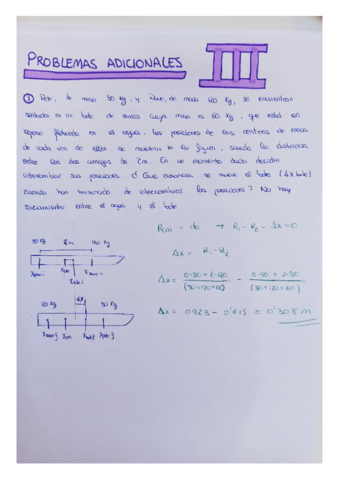 PROBLEMAS ADICIONALES III
① Pete, de masa 80 kg, y Dave, de masa 120 kg, se encuentran
sentados en un bote de remos cuya masa es 60 kg, que está en
reposo flotando en el agua, las posiciones de los centros de masa
de cada uno de ellos se muestran en la figura, siendo la distancia
entre los dos amigos de 2m. En un momento dado deciden
intercambiar sus posiciones ¿ Qué distancia se mueve el bote (Δx bote)
cuando han terminado de intercambiarse las posiciones? No hay
rozamiento entre el agua y el bote
Rcm = cte → R₁ - R₂ - Δx = 0
80 kg 2m 120 kg
Δx = R₁ - R₂
Δx = 0·80 + 2·120 / (80+120+60) - 0·120 + 2·80 / (80+120+60)
Δx
120 kg 80 kg
Δx = 0'923 - 0'615 = 0'308 m